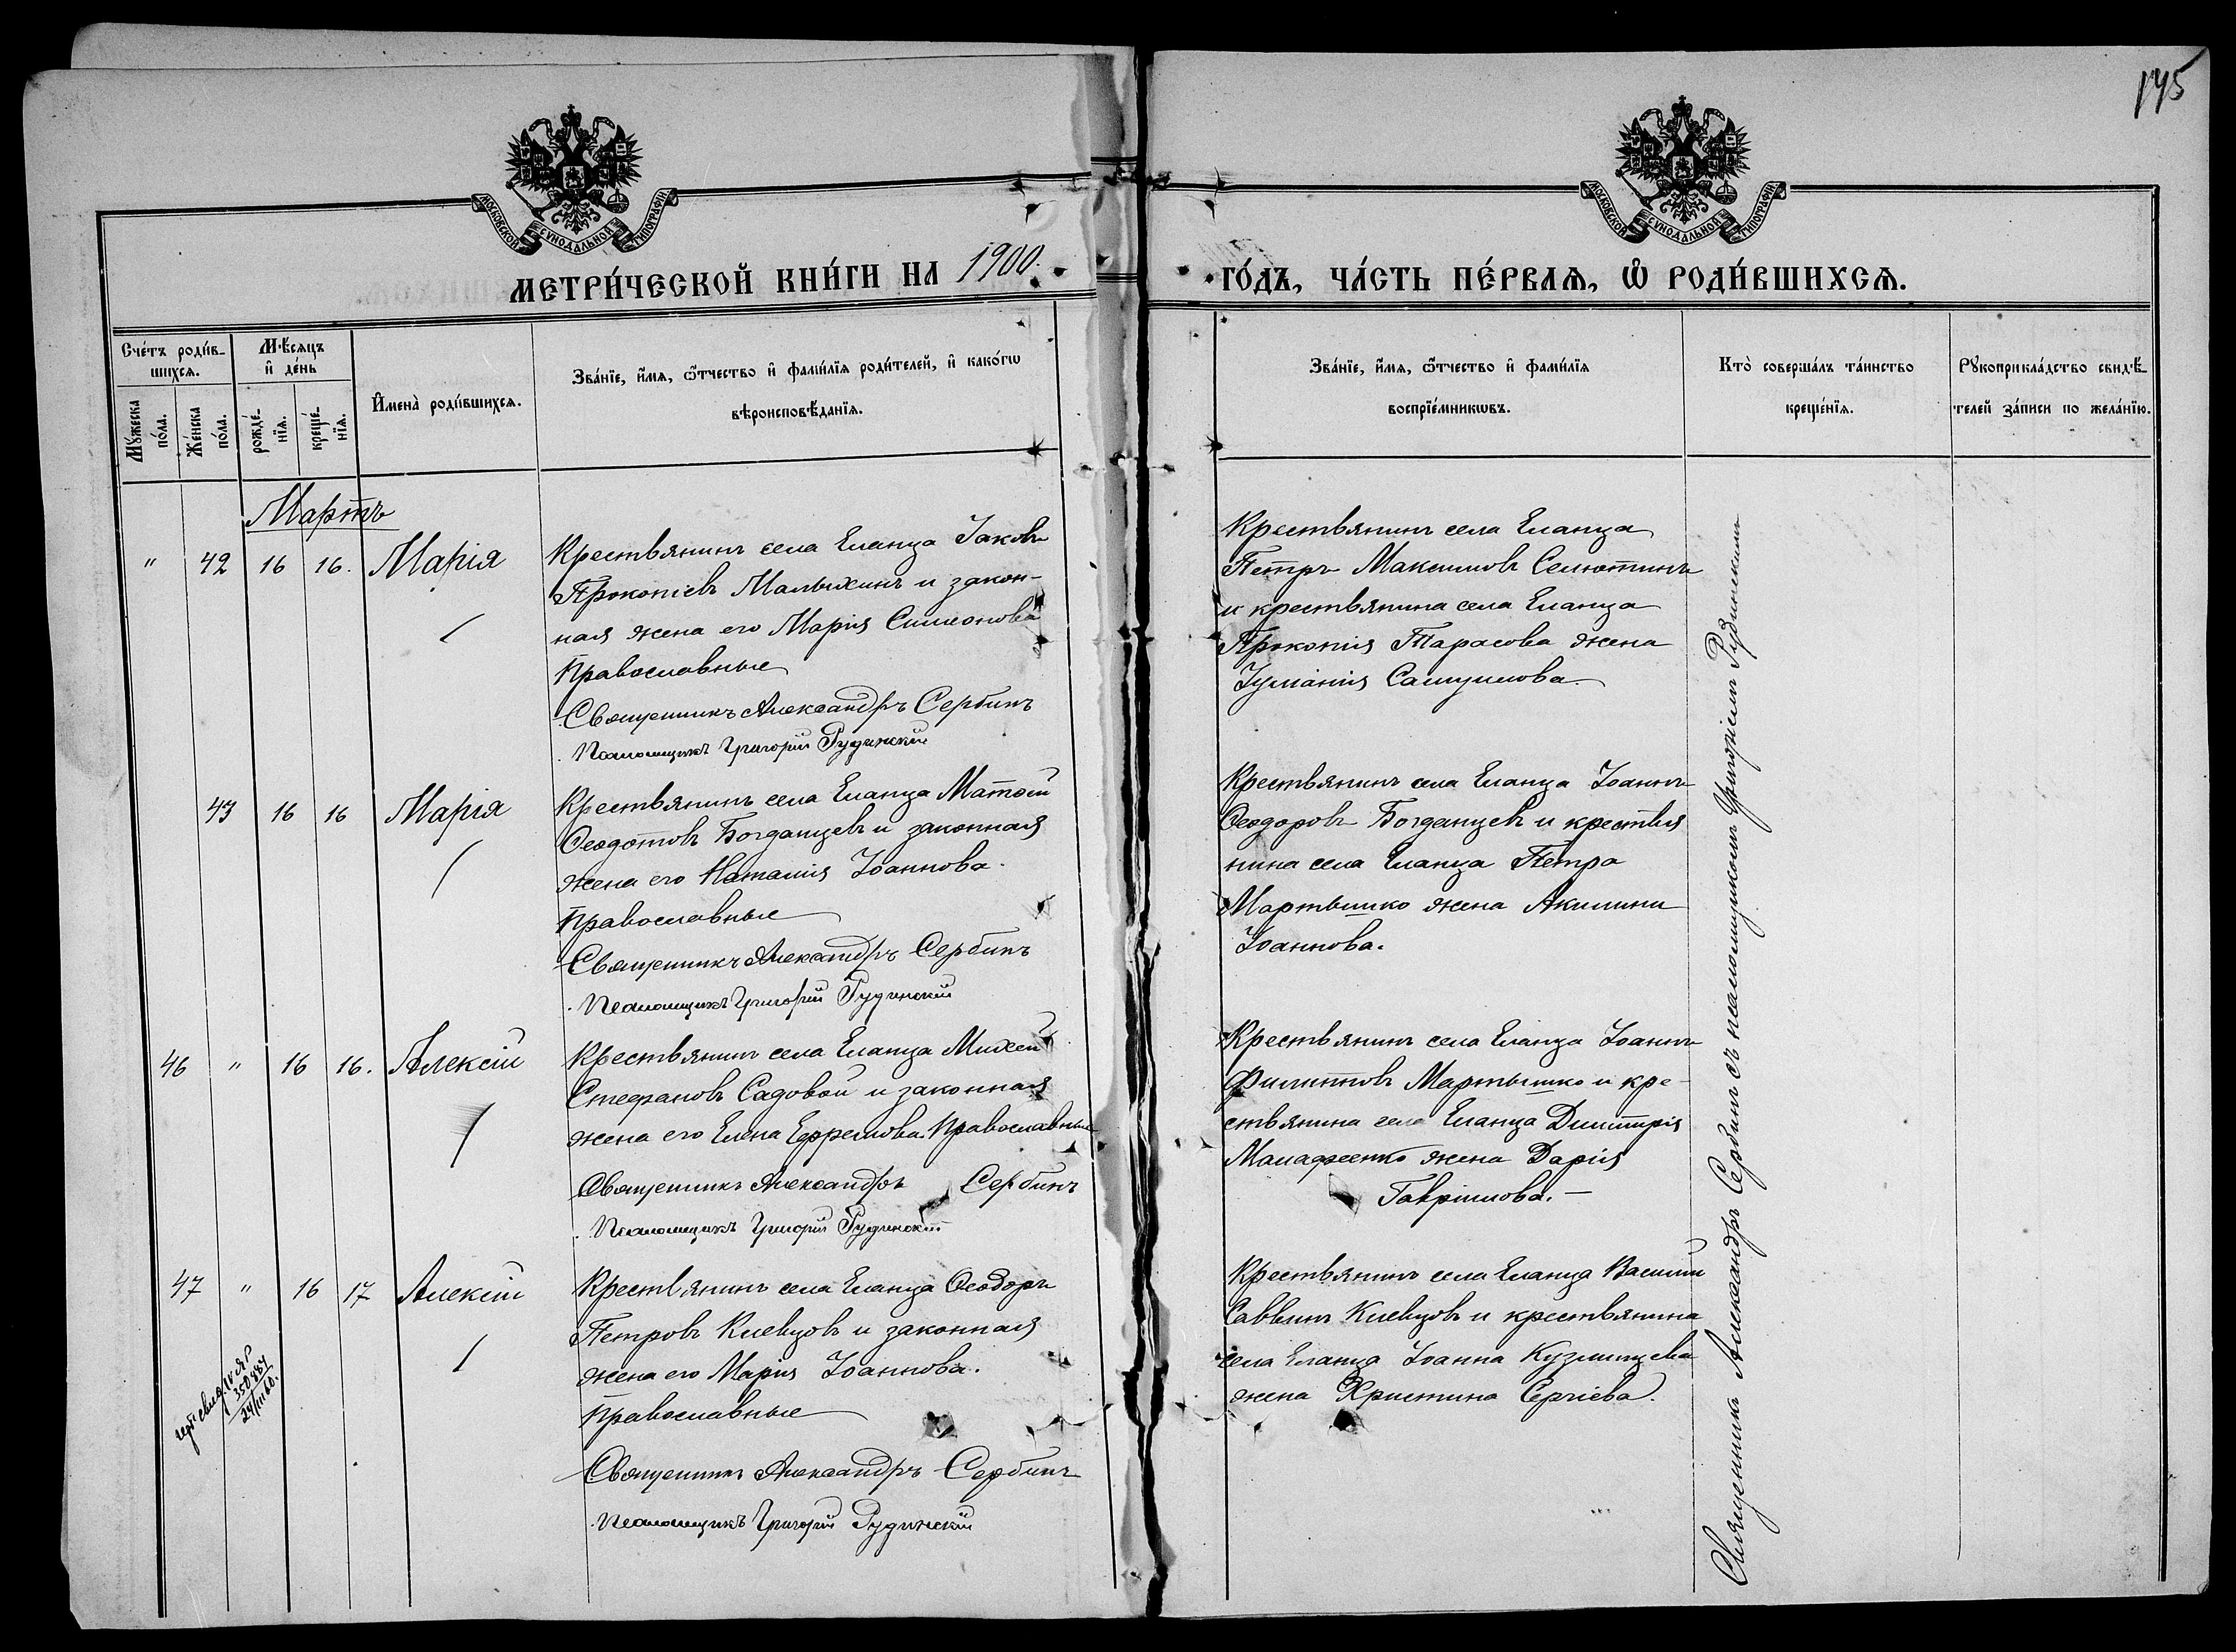 145
МОСКОВСКОЙ СѴНОДАЛЬНОЙ ТИПОГРАФІИ
МОСКОВСКОЙ СѴНОДАЛЬНОЙ ТИПОГРАФІИ
МЕТРИ́ЧЕСКОЙ КНИ́ГИ НА 1900.
ГО́ДЪ, ЧА́СТЬ ПЕ́РВАѦ, Ѡ҆ РОДИ́ВШИХСѦ.
Сче́тъ роди́в-
шихсѧ.
Мꙋ́жеска по́ла.
Же́нска по́ла.
Мѣ́сѧцъ
и҆ де́нь
рожде́-
нїѧ.
креще́-
нїѧ.
И҆мена̀ роди́вшихсѧ.
Зва́нїе, и҆́мѧ, ѻ҆́тчество и҆ фами́лїѧ роди́телей, и҆ како́гѡ
вѣроисповѣ́данїѧ.
Зва́нїе, и҆́мѧ, ѻ҆́тчество и҆ фами́лїѧ
воспрїе́мникѡвъ.
Кто̀ соверша́лъ та́инство
креще́нїѧ.
Рꙋкоприкла́дство свидѣ́-
телей за́писи по жела́нїю.
Мартъ
" 42 16 16. Марія
Крестьянинъ села Еланца Іаковъ
Прокопіевъ Малыхинъ и закон-
ная жена его Марія Симеонова
Православные
Священникъ Александръ Сербинъ
Псаломщикъ Григорій Рудинскій
Крестьянинъ села Еланца
Петръ Максимовъ Селютинъ
и крестьянина села Еланца
Прокопія Тарасова жена
Іуліанія Самуилова.
43 16 16 Марія
Крестьянинъ села Еланца Матѳей
Ѳеодотовъ Богданцевъ и законная
жена его Наталія Іоаннова.
Православные
Священникъ Александръ Сербинъ
Псаломщикъ Григорій Рудинскій
Крестьянинъ села Еланца Іоаннъ
Ѳеодоровъ Богданцевъ и крестья
нина села Еланца Петра
Мартышко жена Акилина
Іоаннова.
46 " 16 16. Алексій
Крестьянинъ села Еланца Михей
Стефановъ Садовой и законная
жена его Елена Ефремова. Православные
Священникъ Александръ Сербинъ
Псаломщикъ Григорій Рудинскій
Крестьянинъ села Еланца Іоаннъ
Филипповъ Мартышко и кре-
стьянина села Еланца Димитрія
жена Дарія
Гавріилова. —
47 " 16 17 Алексій
Крестьянинъ села Еланца Ѳеодоръ
Петровъ Киевцовъ и законная
жена его Марія Іоаннова.
Православные
Священникъ Александръ Сербинъ
Псаломщикъ Григорій Рудинскій
Крестьянинъ села Еланца Василій
Саввинъ Киевцовъ и крестьянина
села Еланца Іоанна Кузминцева
жена Христина Сергіева.
24/III 60.
Священникъ Александръ Сербинъ съ псаломщикомъ Григоріемъ Рудинскимъ